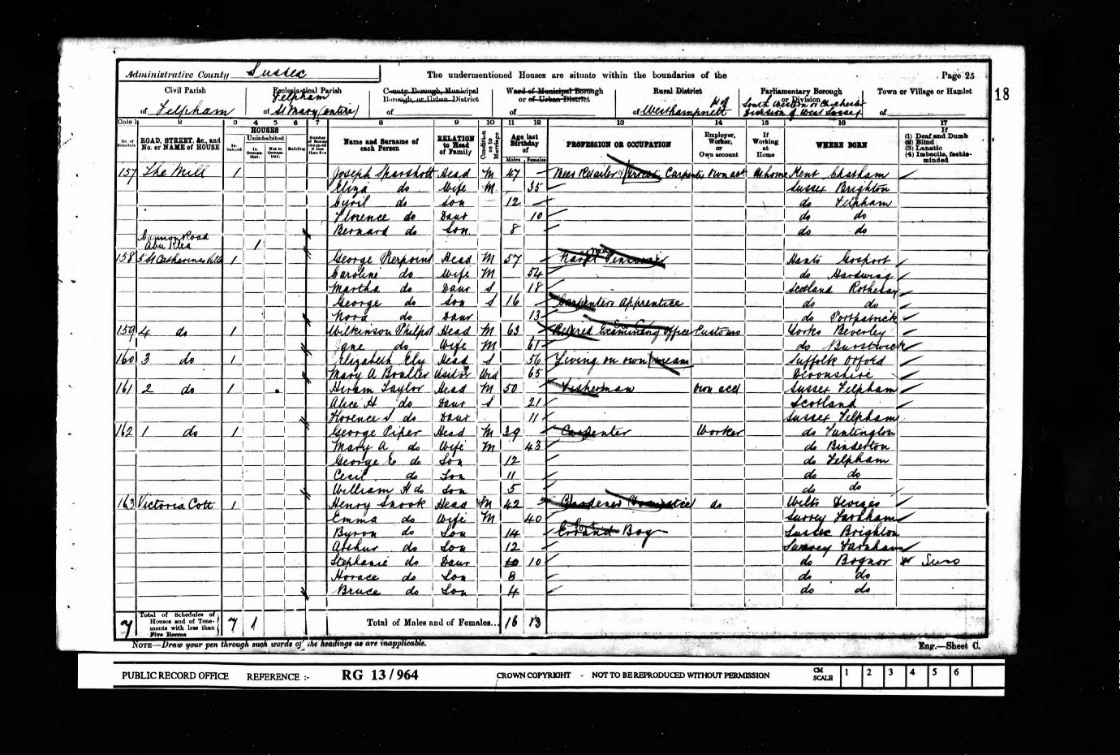 Administrative County Sussex The undermentioned Houses are situate within the boundaries of the Page 25
18
Civil Parish Ecclesiastical Parish County Borough, Municipal Borough, or Urban District Ward of Municipal Borough or of Urban District Rural District Parliamentary Borough or Division Town or Village or Hamlet
of Felpham of Felpham St Mary (entire) of of of Westhampnett of of
Cols. 1 2 3 4 5 6 7 8 9 10 11 12 13 14 15 16 17
No. of Schedule ROAD, STREET, &c., and No. or NAME of HOUSE HOUSES Inhabited Uninhabited In Occupation Not in Occupation Building Name and Surname of each Person RELATION to Head of Family Condition as to Marriage Age last Birthday of Males Females PROFESSION OR OCCUPATION Employer, Worker, or Own account If Working at Home WHERE BORN If (1) Deaf and Dumb (2) Blind (3) Lunatic (4) Imbecile, feeble-minded
157 The Mill 1 Joseph Sparshott Head M 47 Carpenter Own act At home Kent Chatham
Eliza do Wife M 35 Sussex Brighton
Cyril do Son 12 do Felpham
Florence do Daur 10 do do
Bernard do Son 8 do do
Abu Klea 1
158 5 St Catherines Villa 1 George Pierpoint Head M 57 Hants Gosport
Caroline do Wife M 54 do
Martha do Daur S 18 Scotland Rothesay
George do Son S 16 Carpenter Apprentice do do
Nora do Daur 13 do Portpatrick
159 4 do 1 Wilkinson Philpot Head M 63 Retired Examining Officer Customs Yorks Beverley
Jane do Wife M 61 do Burstwick
160 3 do 1 Elizabeth Ely Head S 56 Living on own means Suffolk Orford
Mary A Visitor Wid 65 Devonshire
161 2 do 1 Hiram Taylor Head M 50 Fisherman Own acct Sussex Felpham
Alice H do Daur S 21 Scotland
Florence S do Daur 11 Sussex Felpham
162 1 do 1 George Piper Head M 39 Carpenter Worker do Funtington
Mary A do Wife M 43 do Binderton
George E do Son 12 do Felpham
Cecil do Son 11 do do
William H do Son 5 do do
163 Victoria Cott 1 Henry Snook Head M 42 Gardener Domestic do Wilts Devizes
Emma do Wife M 40 Surrey Farnham
Byron do Son 14 Errand Boy Sussex Brighton
Arthur do Son 12 Surrey Farnham
Stephanie do Daur 10 do Bognor
Horace do Son 8 do do
Bruce do Son 4 do do
7 Total of Schedules of Houses and of Tenements with less than Five Rooms 7 1 Total of Males and of Females... 16 13
NOTE—Draw your pen through such words of the headings as are inapplicable. Eng.—Sheet C.
PUBLIC RECORD OFFICE REFERENCE :- RG 13/964 CROWN COPYRIGHT - NOT TO BE REPRODUCED WITHOUT PERMISSION CM SCALE 1 2 3 4 5 6